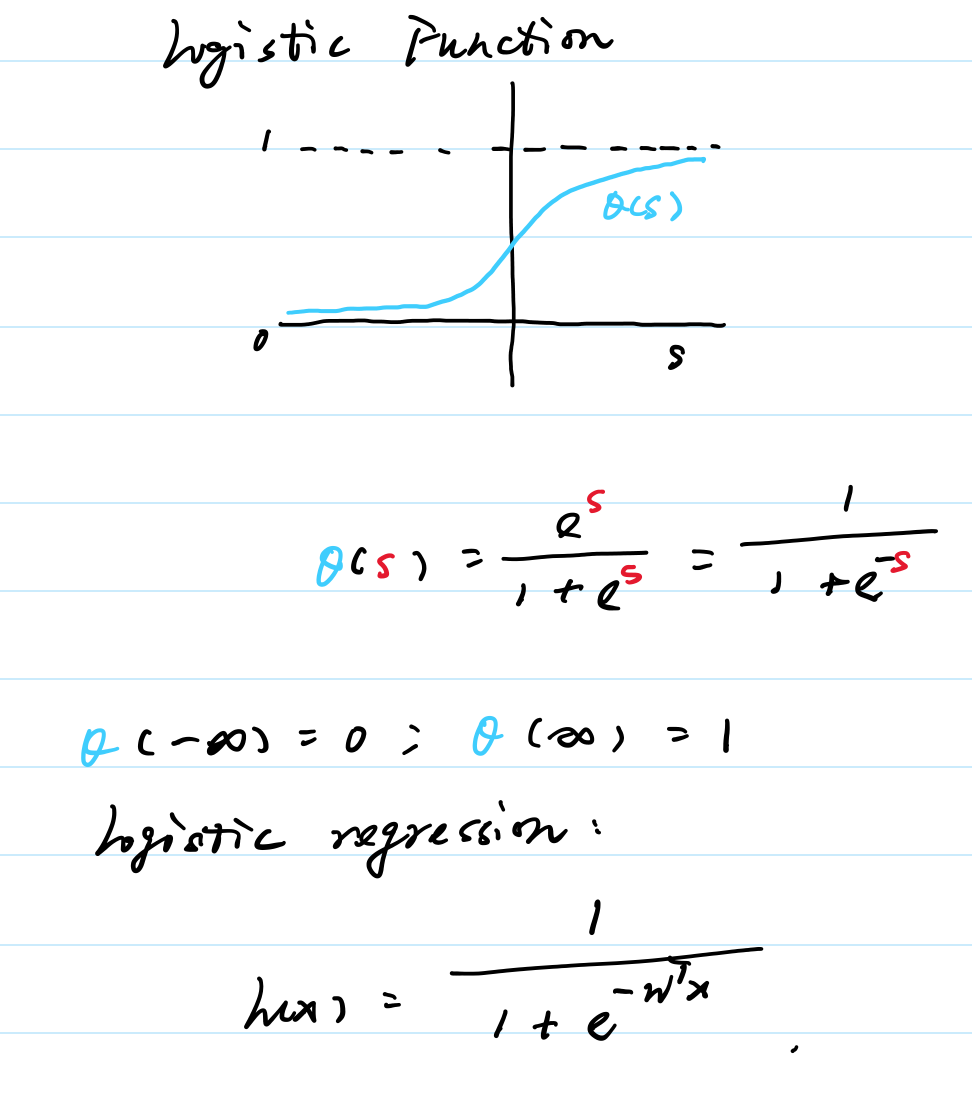 Logistic Function
1
θ(s)
0
s
θ(s) = e^s / (1 + e^s) = 1 / (1 + e^-s)
θ(-∞) = 0 ; θ(∞) = 1
Logistic regression:
h(x) = 1 / (1 + e^-w^T x) .